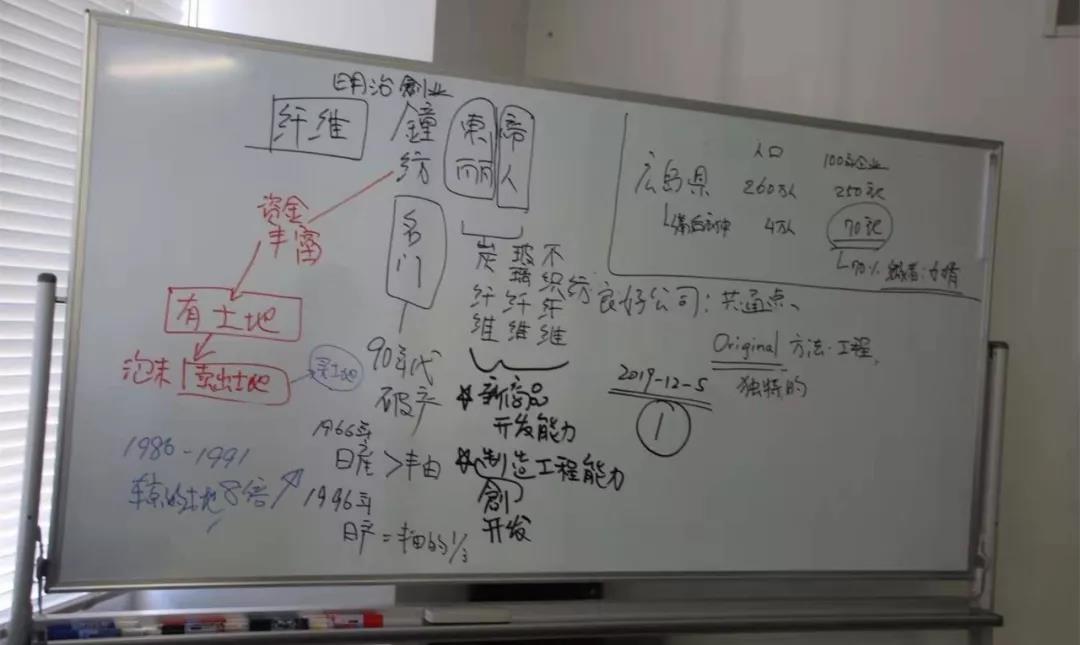 明治創业
纤维
鐘纺
東丽
帝人
资金丰富
有土地
泡沫 卖出土地
买土地
1986-1991
东京的土地8倍
名门
90年代
破产
1966年
日産>丰田
1996年
日产=丰田的1/3
炭纤维
玻璃纤维
不织纺纤维
新商品
开发能力
制造工程能力
創
开发
人口 100年企业
広島県 260万人 250家
备后府中 4万人 70家
70%
良好公司:共通点、
Original 方法·工程,
独特的
2019-12-5
1